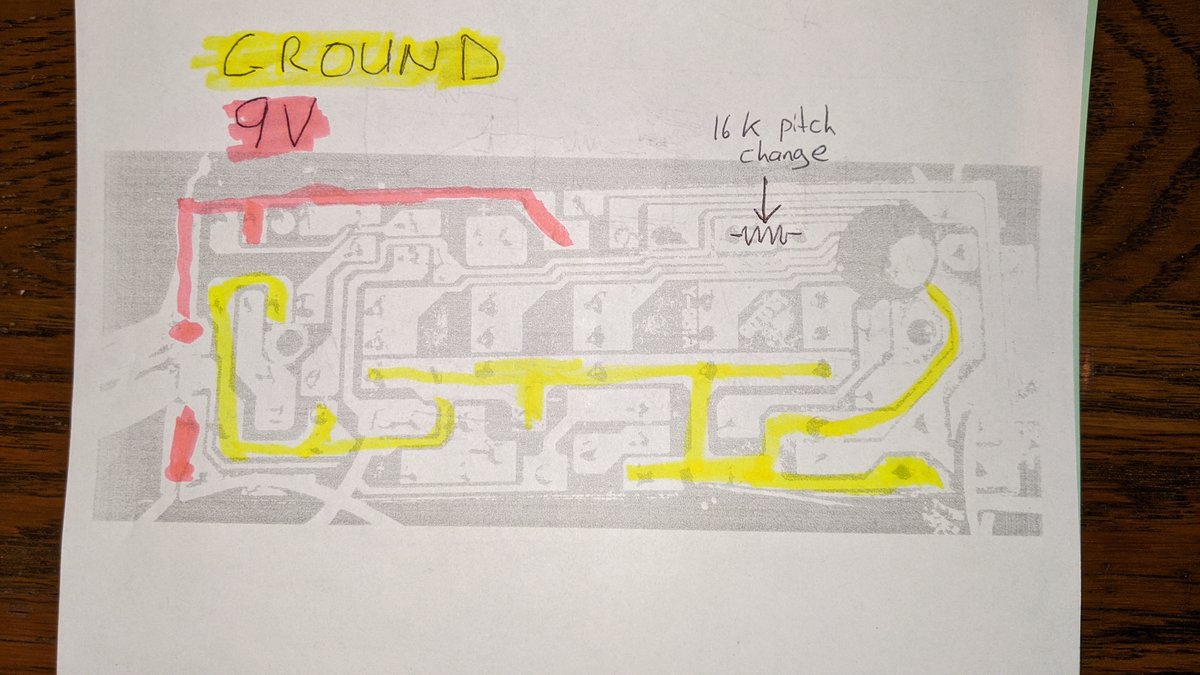 GROUND
9V
16 K pitch
change